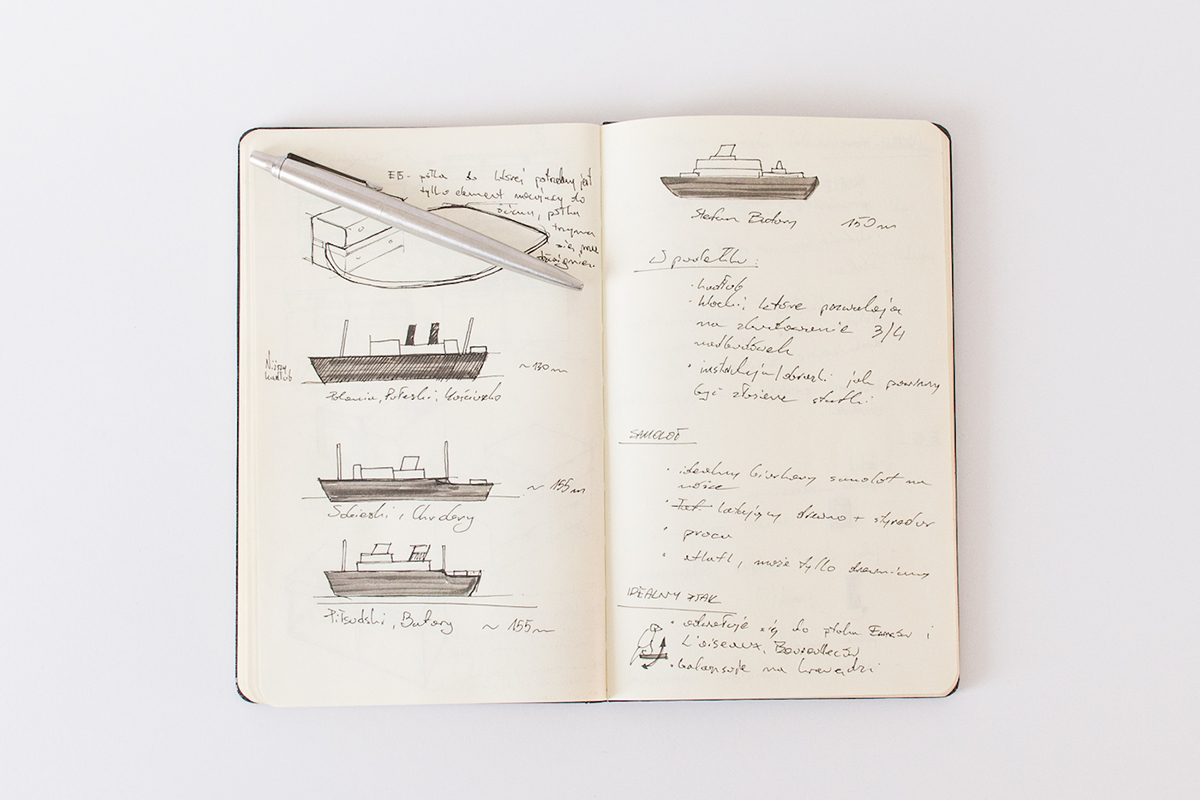 E5 - półka do której potrzebny jest
tylko element mocujący do
ściany, półka
trzyma
się przez
Niższy
kadłub
~130m
Polonia, Pułaski, Kościuszko
~155m
Sobieski, Chrobry
Piłsudski, Batory ~155m
Stefan Batory 150m
W pudełku:
· kadłub
· klocki które pozwalają
na zbudowanie 3/4
nadbudówek
· instrukcja/obrazki jak powinny
być złożone statki
SAMOLOT
· idealny samolot na
· latający drewno + styrodur
· proca
· atlatl, może tylko drewniany
IDEALNY PTAK
· odwołuje się do ptaka Eamesów i
L'oiseaux, Bouroullec'ów
· balansuje na krawędzi